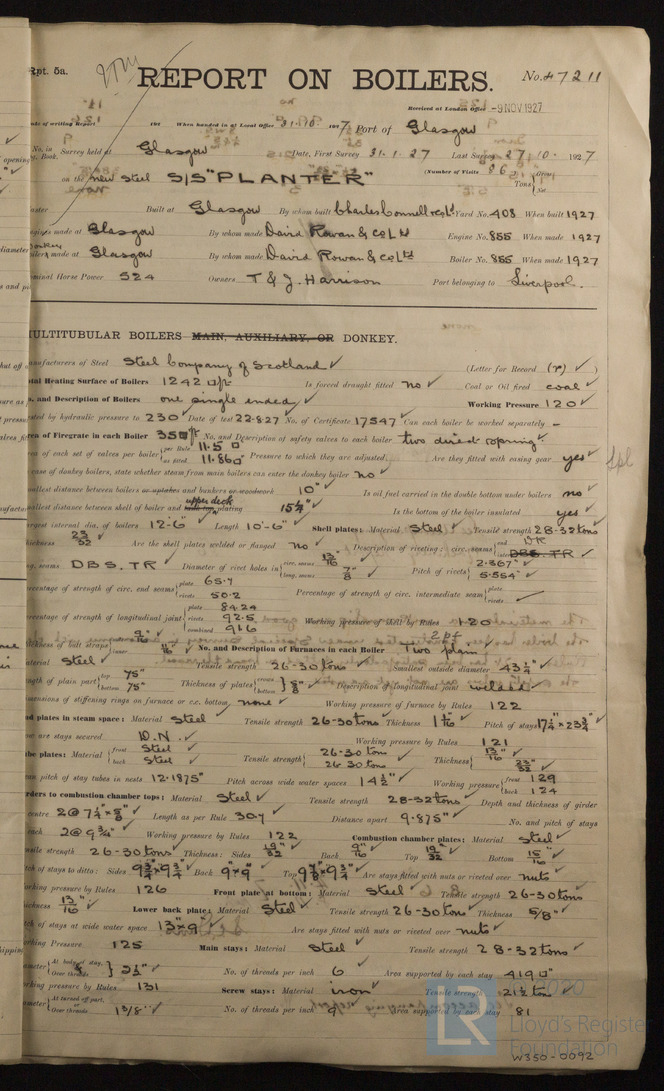 Rpt. 5a.
REPORT ON BOILERS.
No. 47211
Received at London Office -9 NOV 1927
When handed in at Local Office 31.10.1927 Port of Glasgow
Survey held at Glasgow Date, First Survey 31.1.27 Last Survey 27.10.1927
on the new steel S/S "PLANTER" (Number of Visits 86) Gross
Tons Net
Built at Glasgow By whom built Charles Connell & Co Ld Yard No. 408 When built 1927
made at Glasgow By whom made David Rowan & Co Ltd Engine No. 855 When made 1927
made at Glasgow By whom made David Rowan & Co Ltd Boiler No. 855 When made 1927
Horse Power 524 Owners T & J. Harrison Port belonging to Liverpool.
MULTITUBULAR BOILERS MAIN, AUXILIARY, OR DONKEY.
Manufacturers of Steel Steel Company of Scotland (Letter for Record (r) )
Total Heating Surface of Boilers 1242 Is forced draught fitted no Coal or Oil fired coal
and Description of Boilers one single ended Working Pressure 120
Tested by hydraulic pressure to 230 Date of test 22.8.27 No. of Certificate 17547 Can each boiler be worked separately -
Area of Firegrate in each Boiler 35 No. and Description of safety valves to each boiler two direct spring
Area of each set of valves per boiler per Rule 11.5 as fitted 11.86 Pressure to which they are adjusted Are they fitted with easing gear yes
In case of donkey boilers, state whether steam from main boilers can enter the donkey boiler no
Smallest distance between boilers or uptakes and bunkers or woodwork 10" Is oil fuel carried in the double bottom under boilers no
Smallest distance between shell of boiler and upper deck plating 15¼" Is the bottom of the boiler insulated yes
Largest internal dia. of boilers 12'-6" Length 10'-6" Shell plates: Material Steel Tensile strength 28-32 tons
Thickness 23/32 Are the shell plates welded or flanged no Description of riveting: circ. seams end DR
long. seams DBS. TR Diameter of rivet holes in circ. seams 13/16 long. seams 7/8 Pitch of rivets 2.367" 5.554"
Percentage of strength of circ. end seams plate 65.7 rivets 50.2 Percentage of strength of circ. intermediate seam plate rivets
Percentage of strength of longitudinal joint plate 84.24 rivets 92.5 combined 91.6 Working pressure of shell by Rules 120
Thickness of butt straps 9/16 No. and Description of Furnaces in each Boiler Two plain
Material Steel Tensile strength 26-30 tons Smallest outside diameter 43¼"
Length of plain part top 75" bottom 75" Thickness of plates crown bottom 5/8" Description of longitudinal joint welded
Dimensions of stiffening rings on furnace or c.c. bottom none Working pressure of furnace by Rules 122
End plates in steam space: Material Steel Tensile strength 26-30 tons Thickness 1 1/16" Pitch of stays 17¼" x 23¾"
How are stays secured D.N. Working pressure by Rules 121
Tube plates: Material front Steel back Steel Tensile strength 26-30 tons 26 30 tons Thickness 13/16" 23/32"
Mean pitch of stay tubes in nests 12.1875" Pitch across wide water spaces 14½" Working pressure front 129 back 124
Girders to combustion chamber tops: Material Steel Tensile strength 28-32 tons Depth and thickness of girder
centre 2 @ 7¼" x 5/8" Length as per Rule 30.7 Distance apart 9.875" No. and pitch of stays
each 2 @ 9¾" Working pressure by Rules 122 Combustion chamber plates: Material Steel
Tensile strength 26-30 tons Thickness: Sides 19/32 Back 9/16" Top 19/32 Bottom 15/16"
Pitch of stays to ditto: Sides 9¾" x 9¾" Back 9" x 9" Top 9⅞ x 9¾" Are stays fitted with nuts or riveted over nuts
Working pressure by Rules 126 Front plate at bottom: Material Steel Tensile strength 26-30 tons
Thickness 13/16" Lower back plate: Material Steel Tensile strength 26-30 tons Thickness 5/8"
Pitch of stays at wide water space 13" x 9" Are stays fitted with nuts or riveted over nuts
Working Pressure 125 Main stays: Material Steel Tensile strength 28-32 tons
Diameter At body of stay, Over threads No. of threads per inch 6 Area supported by each stay 419
Working pressure by Rules 131 Screw stays: Material iron Tensile strength 21½ ton
Diameter At turned off part, Over threads 1 3/8" No. of threads per inch 9 Area supported by each stay 81
LR
2020
Lloyd's Register
Foundation
W350-0092